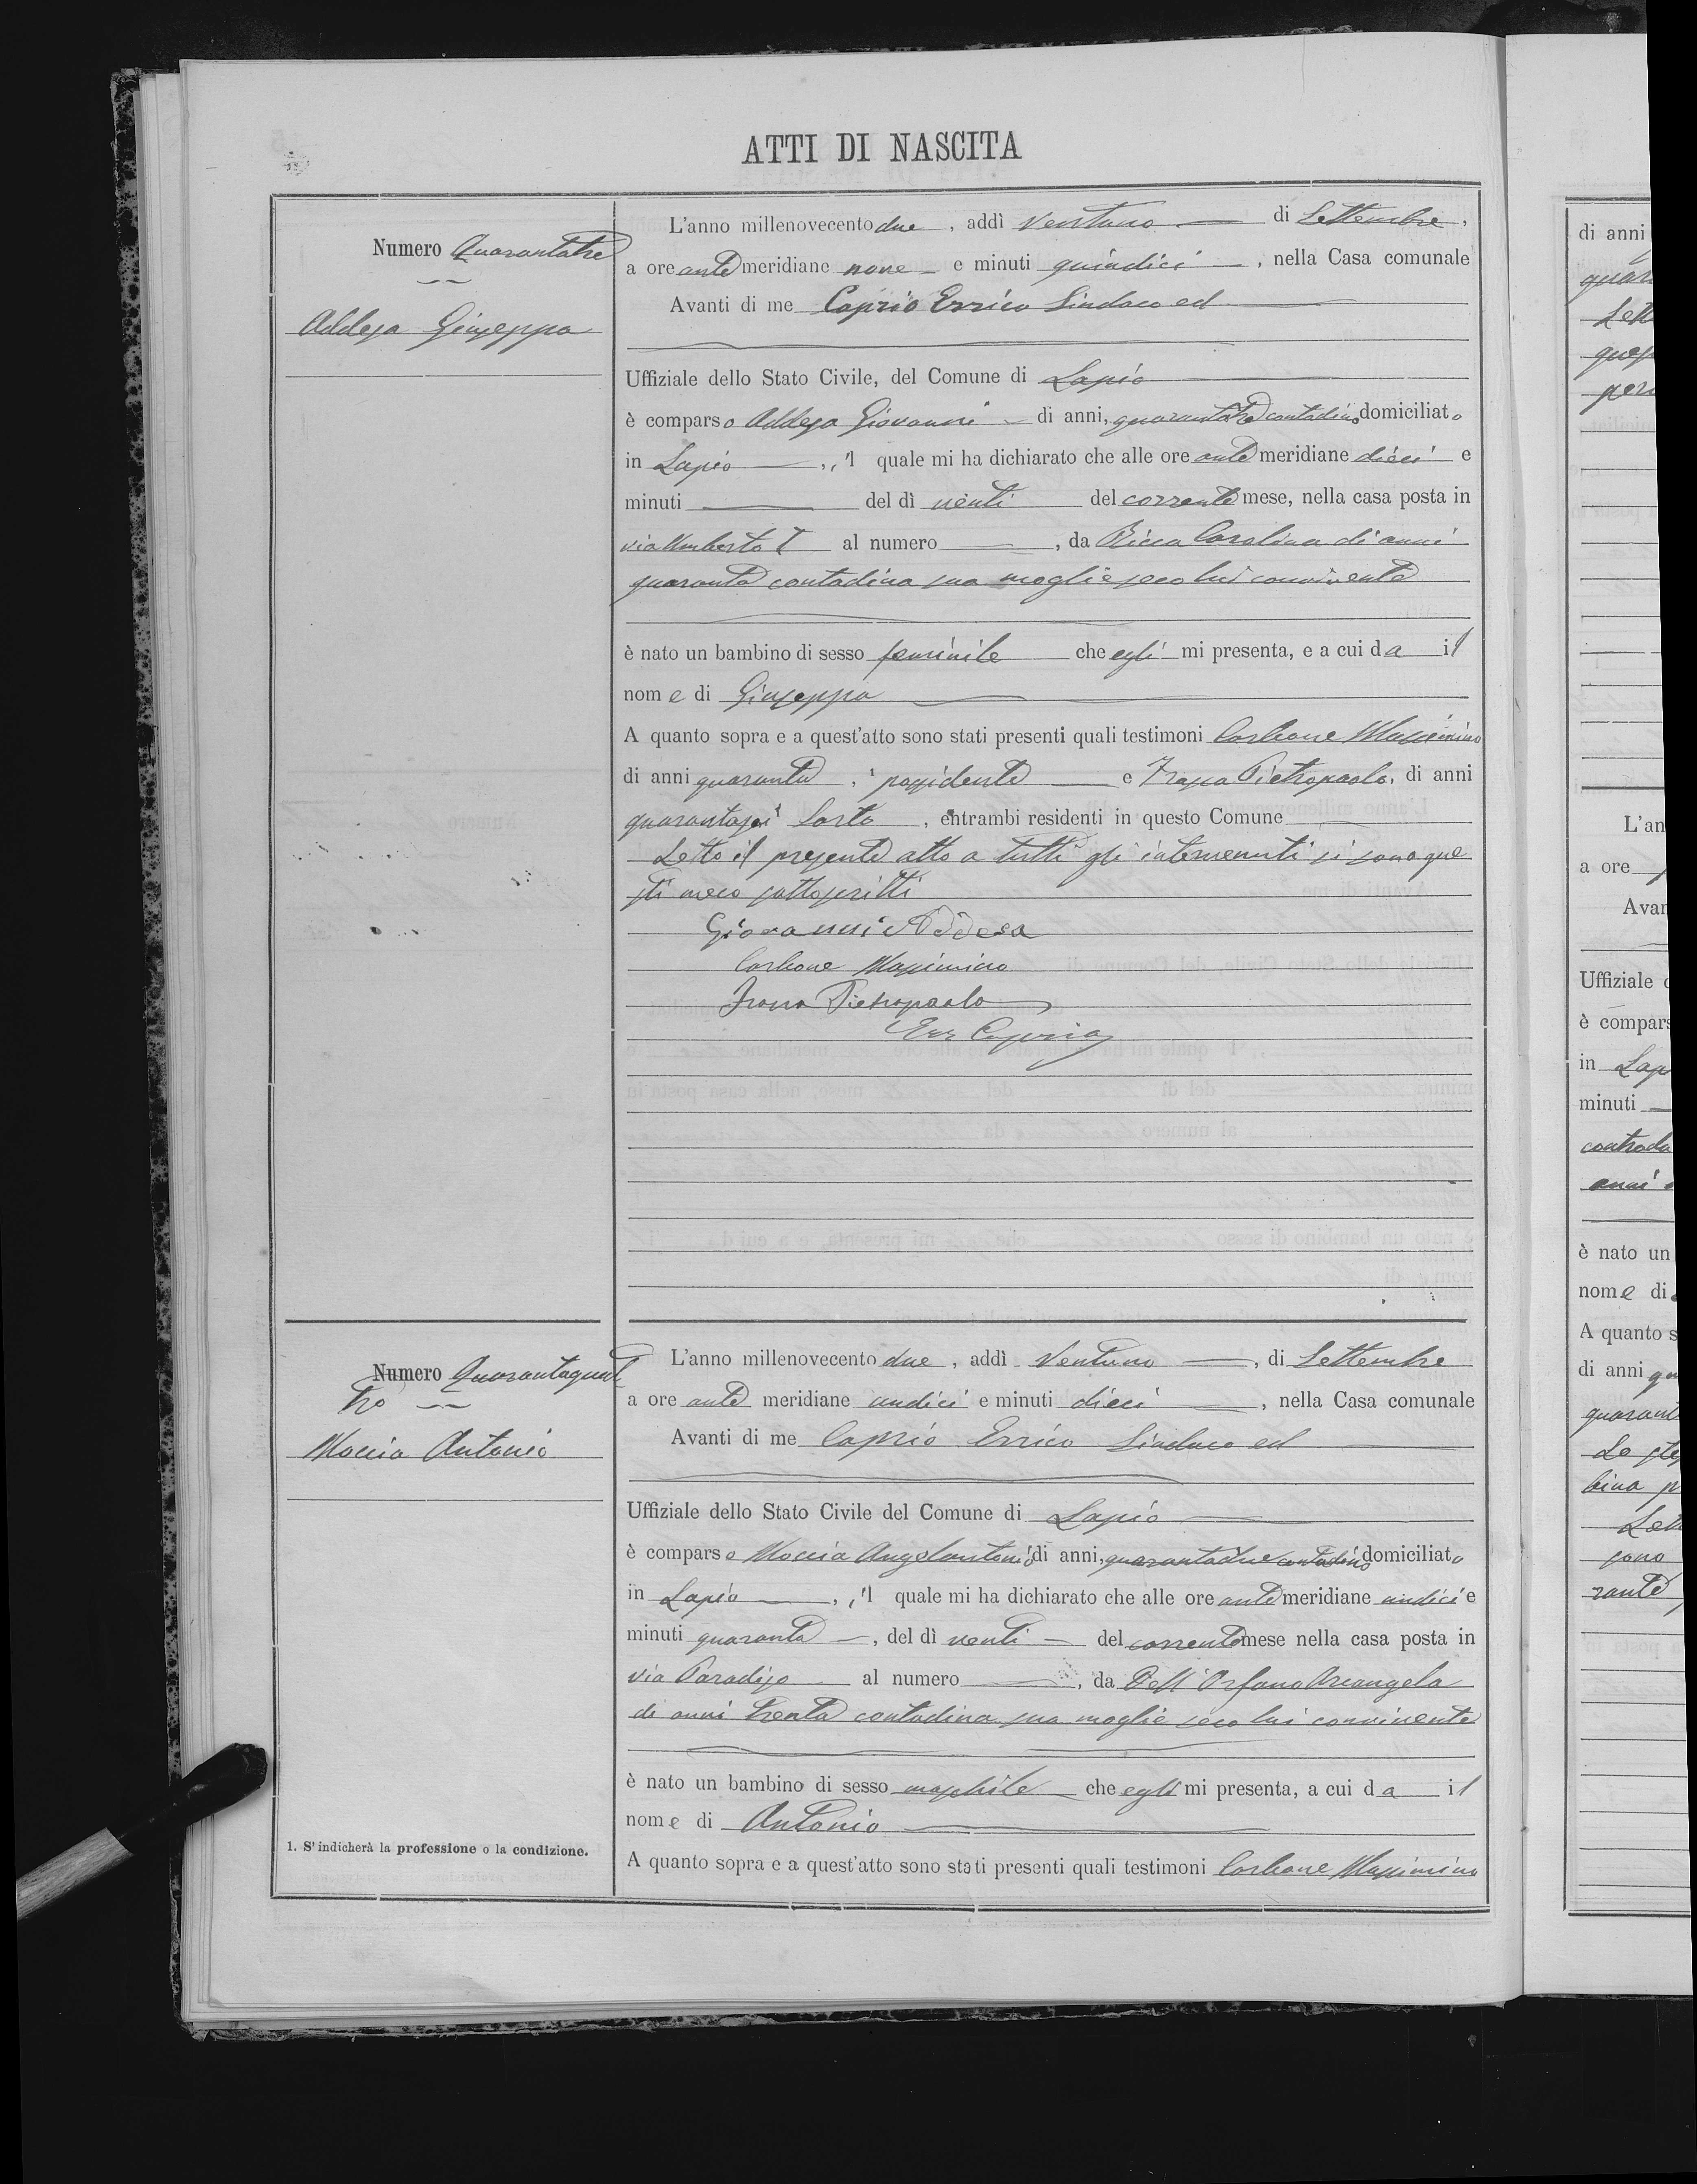 ATTI DI NASCITA
Numero Quarantatre
Addesa Giuseppa
L'anno millenovecento due, addì ventuno di Settembre,
a ore antemeridiane nove e minuti quindici, nella Casa comunale
Avanti di me Caprio Errico Sindaco ed
Uffiziale dello Stato Civile, del Comune di Lapio
è comparso Addesa Giovanni di anni, quarantatre contadino domiciliato
in Lapio, il quale mi ha dichiarato che alle ore antemeridiane dieci e
minuti del dì venti del corrente mese, nella casa posta in
via Umberto I al numero, da Ricca Carolina di anni
quaranta contadina sua moglie seco lui convivente
è nato un bambino di sesso feminile che egli mi presenta, e a cui da il
nome di Giuseppa
A quanto sopra e a quest'atto sono stati presenti quali testimoni Carbone Massimino
di anni quaranta, possidente e Trosa Pietropaolo, di anni
quarantasei Sarto, entrambi residenti in questo Comune
Letto il presente atto a tutti gli intervenuti si sono que
sti meco sottoscritti
Giovanni Addesa
Carbone Massimino
Pietropaolo
Err Caprio
Numero Quarantaquat
tro
Moccia Antonio
L'anno millenovecento due, addì Ventuno, di Settembre
a ore ante meridiane undici e minuti dieci, nella Casa comunale
Avanti di me Caprio Errico Sindaco ed
Uffiziale dello Stato Civile del Comune di Lapio
è comparso Moccia Angelantonio di anni, quarantadue contadino domiciliato
in Lapio, il quale mi ha dichiarato che alle ore antemeridiane undici e
minuti quaranta, del dì venti del corrente mese nella casa posta in
via Paradiso al numero, da Dell'Orfano Arcangela
di anni trenta contadina sua moglie seco lui convivente
è nato un bambino di sesso maschile che egli mi presenta, a cui da il
nome di Antonio
A quanto sopra e a quest'atto sono stati presenti quali testimoni Carbone Massimino
1. S'indicherà la professione o la condizione.
di anni
quara
Lett
ques
pers
L'an
a ore
Avan
Uffiziale d
è compars
in Lapi
minuti
contrada
anni
è nato un
nome di
A quanto s
di anni qu
quarant
Lo ste
bina p
Lett
sono
rante